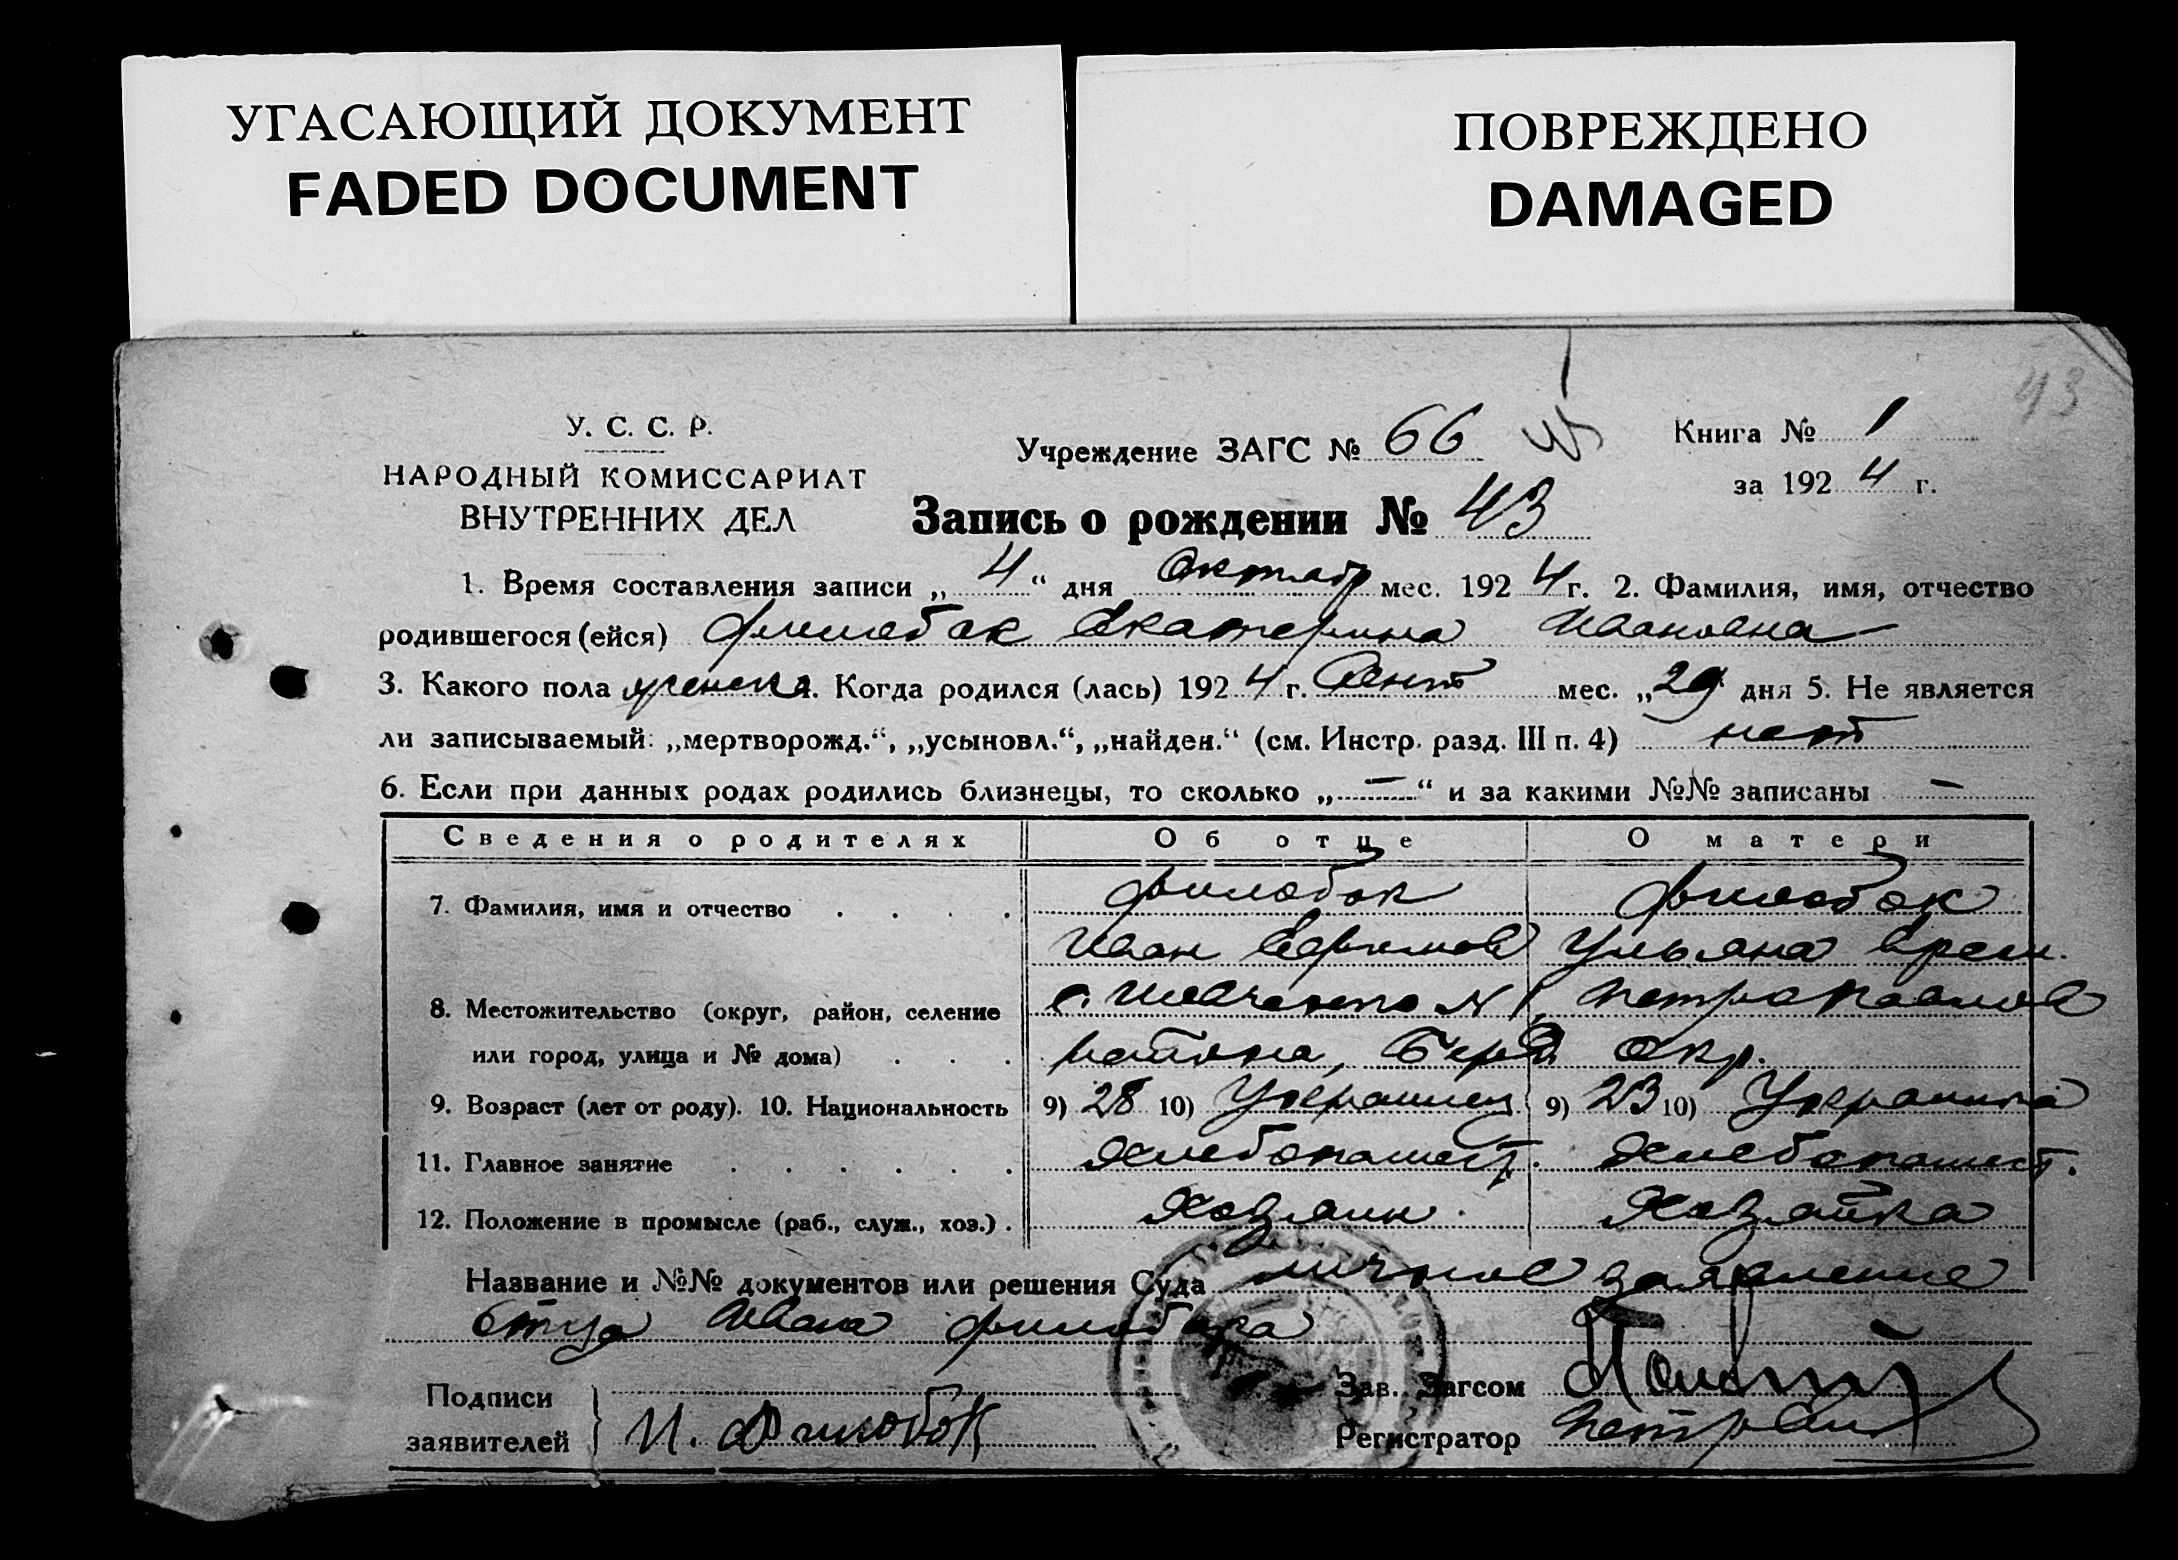 УГАСАЮЩИЙ ДОКУМЕНТ
FADED DOCUMENT
ПОВРЕЖДЕНО
DAMAGED
43
У. С. С. Р.
НАРОДНЫЙ КОМИССАРИАТ
ВНУТРЕННИХ ДЕЛ
Учреждение ЗАГС № 66
Книга № 1
за 1924 г.
Запись о рождении № 43
1. Время составления записи „4“ дня Октябр мес. 1924 г. 2. Фамилия, имя, отчество
родившегося (ейся) Филобок Екатерина Ивановна
3. Какого пола женска. Когда родился (лась) 1924 г. Сент мес. „29“ дня 5. Не является
ли записываемый: „мертворожд.“, „усыновл.“, „найден.“ (см. Инстр. разд. III п. 4) нет
6. Если при данных родах родились близнецы, то сколько „—“ и за какими №№ записаны —
Сведения о родителях Об отце О матери
7. Фамилия, имя и отчество Филобок Филобок
Иван Ефимов Ульяна
8. Местожительство (округ, район, селение с. №1, Петропавлов
или город, улица и № дома) района, Берд. Окр.
9. Возраст (лет от роду). 10. Национальность 9) 28 10) Украинец 9) 23 10) Украинка
11. Главное занятие Хлебопашест. Хлебопашест.
12. Положение в промысле (раб., служ., хоз.) Хозяин. Хозяйка
Название и №№ документов или решения Суда личное заявление
отца Ивана Филобока
Подписи
заявителей И. Филобок
Зав. Загсом
Регистратор